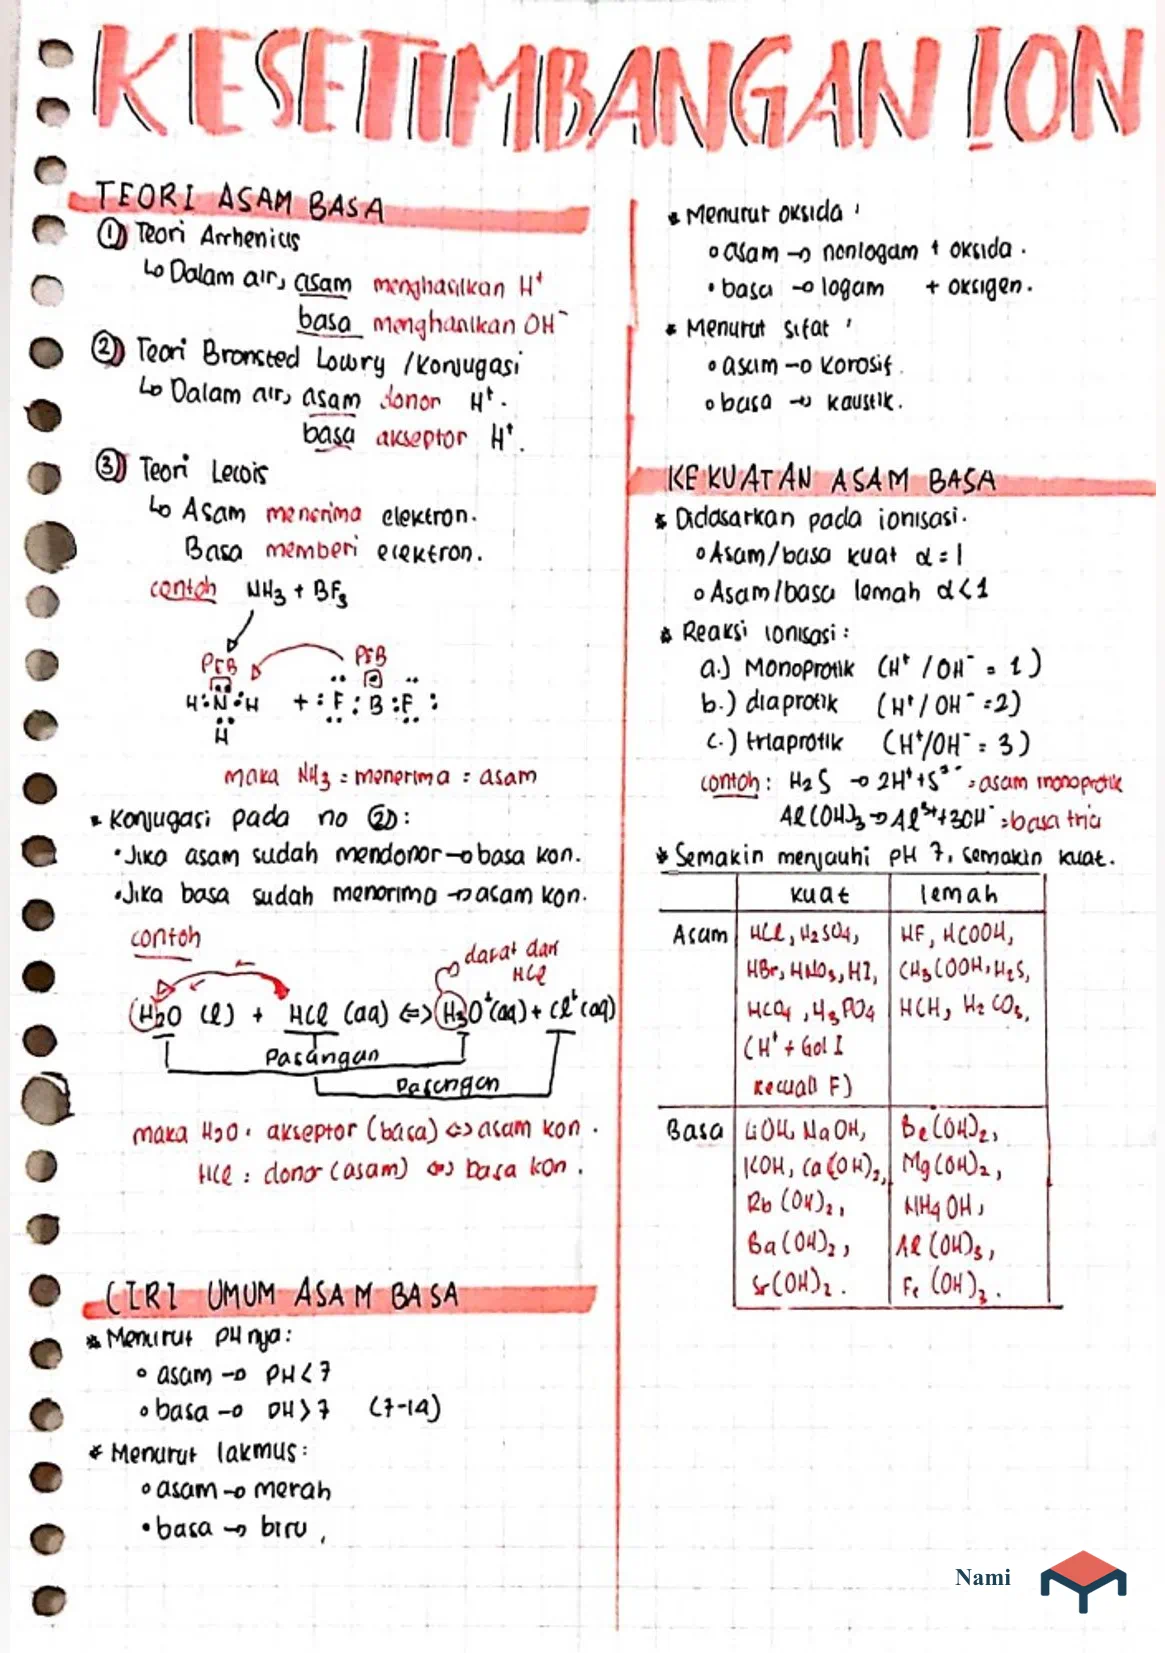 KESETIMBANGAN ION
TEORI ASAM BASA
① Teori Arrhenius
↳ Dalam air, asam menghasilkan H⁺
basa menghasilkan OH⁻
② Teori Bronsted Lowry / Konjugasi
↳ Dalam air, asam donor H⁺.
basa akseptor H⁺.
③ Teori Lewis
↳ Asam menerima elektron.
Basa memberi elektron.
contoh NH₃ + BF₃
PEB PEB
H : N : H + : F : B : F :
H
maka NH₃ = menerima = asam
* Konjugasi pada no ②:
• Jika asam sudah mendonor → basa kon.
• Jika basa sudah menerima → asam kon.
contoh
dapat dari
HCl
(H₂O (l) + HCl (aq) ⇔ H₃O⁺(aq) + Cl⁻(aq)
Pasangan
Pasangan
maka H₂O : akseptor (basa) ⇔ asam kon.
HCl : donor (asam) ⇔ basa kon.
CIRI UMUM ASAM BASA
* Menurut pHnya:
∘ asam → pH < 7
∘ basa → pH > 7 (7-14)
* Menurut lakmus:
∘ asam → merah
• basa → biru,
* Menurut oksida :
∘ asam → nonlogam + oksida.
• basa → logam + oksigen.
* Menurut sifat :
∘ asam → korosif.
∘ basa → kaustik.
KEKUATAN ASAM BASA
* Didasarkan pada ionisasi.
∘ Asam/basa kuat α = 1
∘ Asam/basa lemah α < 1
* Reaksi ionisasi:
a.) Monoprotik (H⁺ / OH⁻ = 1)
b.) diaprotik (H⁺/ OH⁻ = 2)
c.) triaprotik (H⁺/OH⁻ = 3)
contoh : H₂S → 2H⁺ + S²⁻ = asam monoprotik
Al(OH)₃ → Al³⁺ + 3OH⁻ = basa tria
* Semakin menjauhi pH 7, semakin kuat.
kuat lemah
Asam HCl, H₂SO₄, HF, HCOOH,
HBr, HNO₃, HI, CH₃COOH, H₂S,
HClO₄, H₃PO₄ HCH, H₂CO₃,
(H⁺ + Gol I
kecuali F)
Basa LiOH, NaOH, Be(OH)₂,
KOH, Ca(OH)₂, Mg(OH)₂,
Rb(OH)₂, NH₄OH,
Ba(OH)₂, Al(OH)₃,
Sr(OH)₂. Fe(OH)₂.
Nami